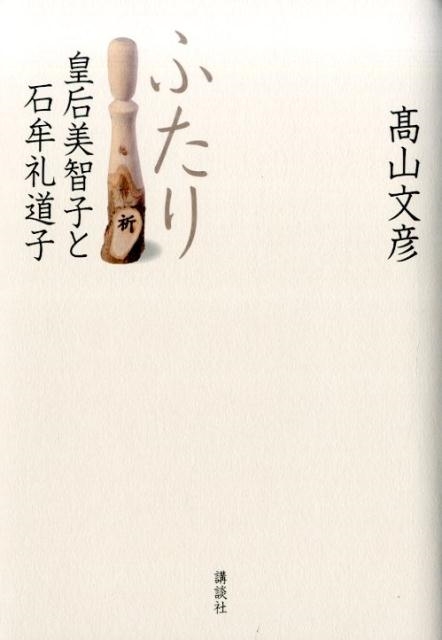 髙山文彦
ふたり
皇后美智子と
石牟礼道子
祈
講談社